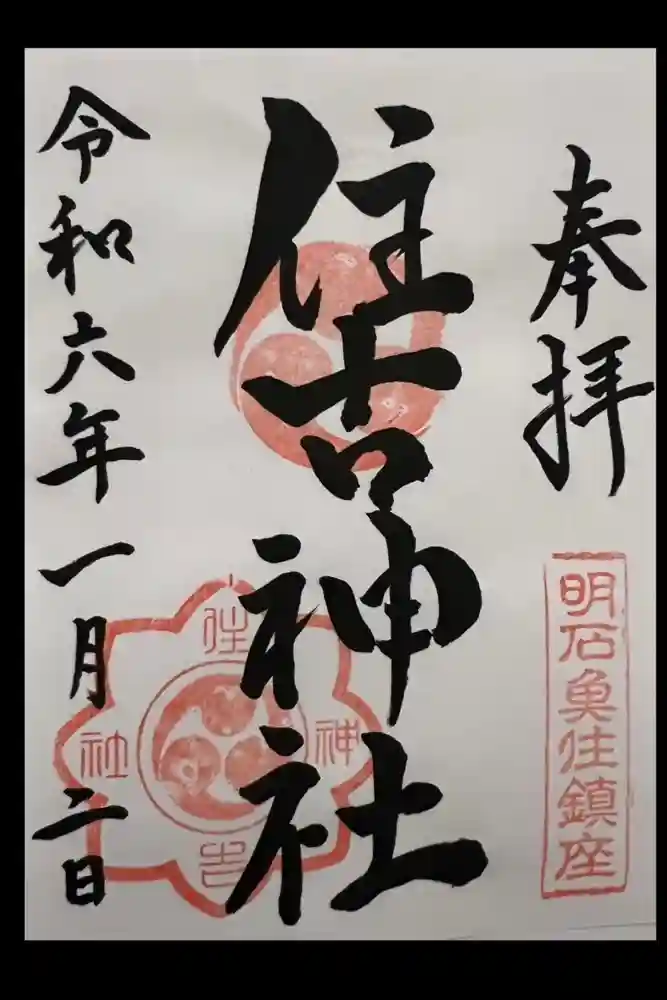 奉拝
明石魚住鎮座
住吉神社
住吉神社
令和六年一月二日